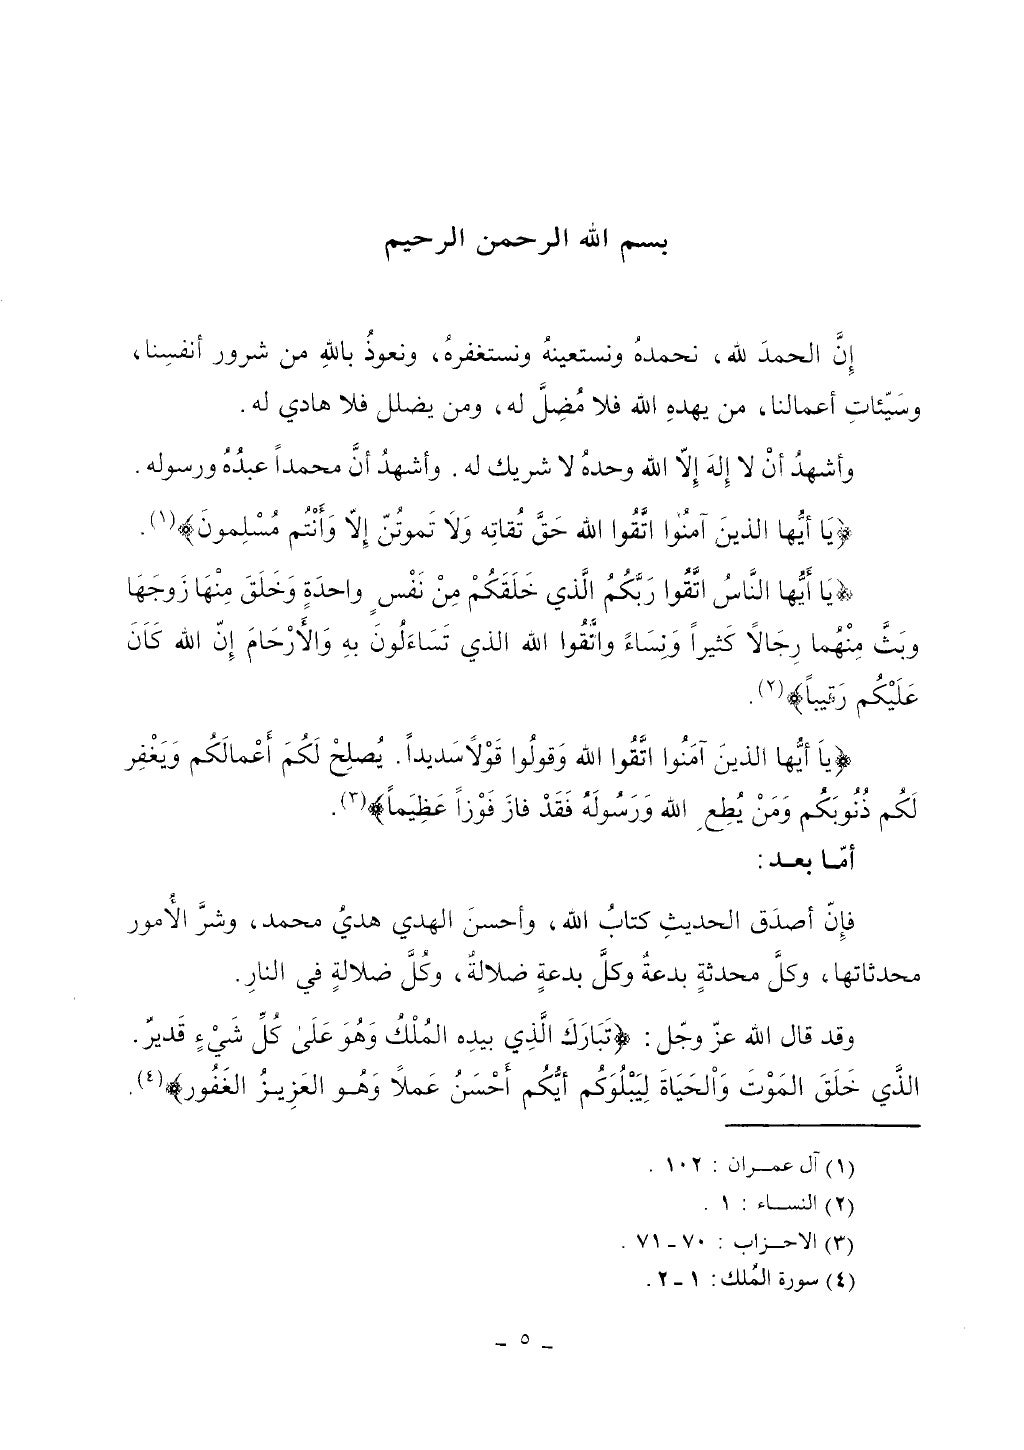 بسم الله الرحمن الرحيم
إنَّ الحمدَ لله، نحمدهُ ونستعينهُ ونستغفرهُ، ونعوذُ باللهِ من شرور أنفسِنا،
وسَيّئاتِ أعمالنا، من يهدهِ الله فلا مُضِلَّ له، ومن يضلل فلا هادي له.
وأشهدُ أنْ لا إِلهَ إِلاّ الله وحدهُ لا شريك له. وأشهدُ أنَّ محمداً عبدُهُ ورسوله.
﴿يَا أيُّها الذينَ آمنُوا اتَّقُوا الله حَقَّ تُقاتِه وَلَا تَموتُنّ إِلاّ وَأَنْتُم مُسْلِمونَ﴾(١).
﴿يا أَيُّها النَّاسُ اتَّقُوا رَبَّكُمُ الَّذي خَلَقَكُمْ مِنْ نَفْسٍ واحدَةٍ وَخَلَقَ مِنْهَا زَوجَهَا
وبَثَّ مِنْهُما رِجَالاً كَثيراً وَنِساءً واتَّقُوا الله الذي تَساءَلُونَ بهِ وَالأَرْحَامَ إِنّ الله كَانَ
عَلَيْكُم رَقيباً﴾(٢).
﴿ياَ أيُّها الذينَ آمَنُوا اتَّقُوا الله وَقولُوا قَوْلاً سَديداً. يُصلِحْ لَكُمَ أَعْمالَكُم وَيَغْفِر
لَكُم ذُنُوبَكُم وَمَنْ يُطِعِ الله وَرَسُولَهُ فَقَدْ فازَ فَوْزاً عَظِيَماً﴾(٣).
أمّـا بعـد:
فإِنّ أصدَق الحديثِ كتابُ الله، وأحسنَ الهدي هديُ محمد، وشرَّ الأُمور
محدثاتها، وكلَّ محدثةٍ بدعةُ وكلَّ بدعةٍ ضلالةُ، وكُلَّ ضلالةٍ في النارِ.
وقد قال الله عزّ وجّل: ﴿تَبَارَكَ الَّذِي بيدِه المُلْكُ وَهُوَ عَلَىٰ كُلِّ شَيْءٍ قَديرٌ.
الذَّي خَلَقَ المَوْتَ وَاْلحَيَاةَ لِيَبْلُوَكُم أيُّكُم أَحْسَنُ عَملاً وَهُـو العَزِيـزُ الغَفُور﴾(٤).
(١) آل عمـران : ١٠٢ .
(٢) النسـاء : ١ .
(٣) الاحـزاب : ٧٠ ـ ٧١ .
(٤) سورة المُلك: ١ ـ ٢.
ـ ٥ ـ